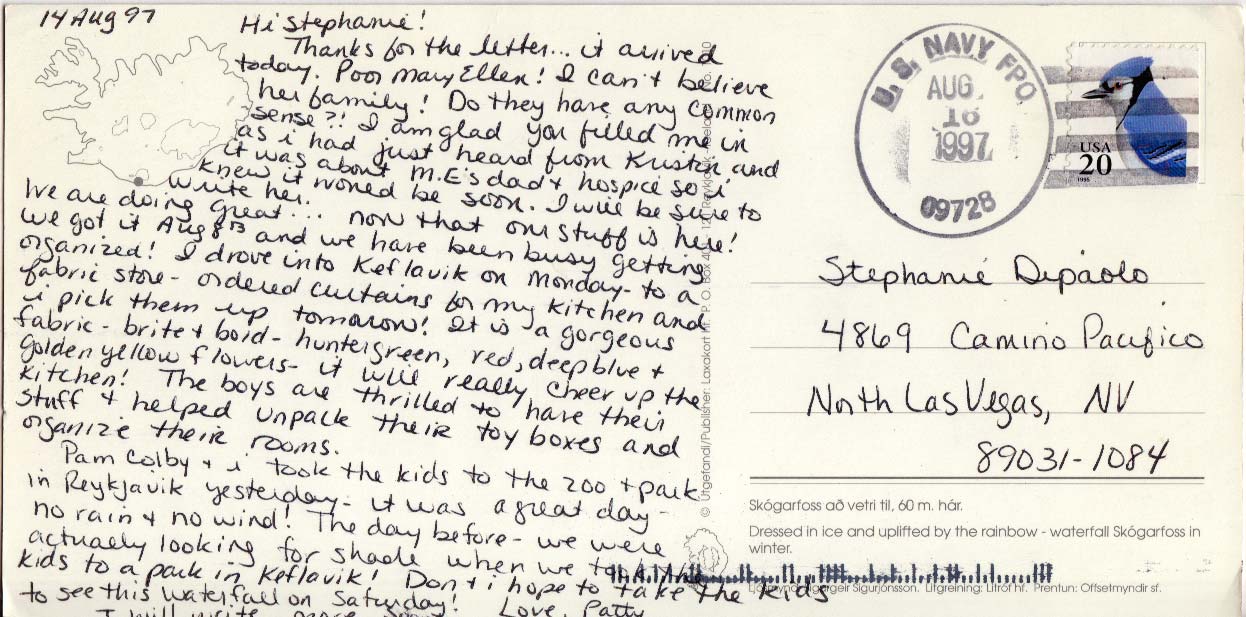 14 Aug 97
Hi Stephanie!
Thanks for the letter... it arrived
today. Poor Mary Ellen! I can't believe
her family! Do they have any common
sense?! I am glad you filled me in
as i had just heard from Kristen and
it was about M.E's dad & hospice so i
knew it would be soon. I will be sure to
write her.
We are doing great... now that our stuff is here!
We got it Aug 8th and we have been busy getting
organized! I drove into Keflavik on Monday- to a
fabric store- ordered curtains for my kitchen and
i pick them up tomorow! It is a gorgeous
fabric- brite & bold- huntergreen, red, deep blue &
golden yellow flowers- it will really cheer up the
kitchen! The boys are thrilled to have their
stuff & helped unpack their toy boxes and
organize their rooms.
Pam Colby & i took the kids to the zoo & park
in Reykjavik yesterday- it was a great day-
no rain & no wind! The day before- we were
actually looking for shade when we took the
kids to a park in Keflavik! Don & i hope to take the kids
to see this waterfall on Saturday! Love, Patty
I will write more
© Útgefandi/Publisher: Laxakort hf. P.O. Box
U.S. NAVY FPO
AUG.
16
1997
09728
USA
20
1996
Stephanie Dipaolo
4869 Camino Pacifico
North Las Vegas, NV
89031-1084
Skógarfoss að vetri til, 60 m. hár.
Dressed in ice and uplifted by the rainbow - waterfall Skógarfoss in
winter.
Sigurjónsson. Litgreining: Litróf hf. Prentun: Offsetmyndir sf.